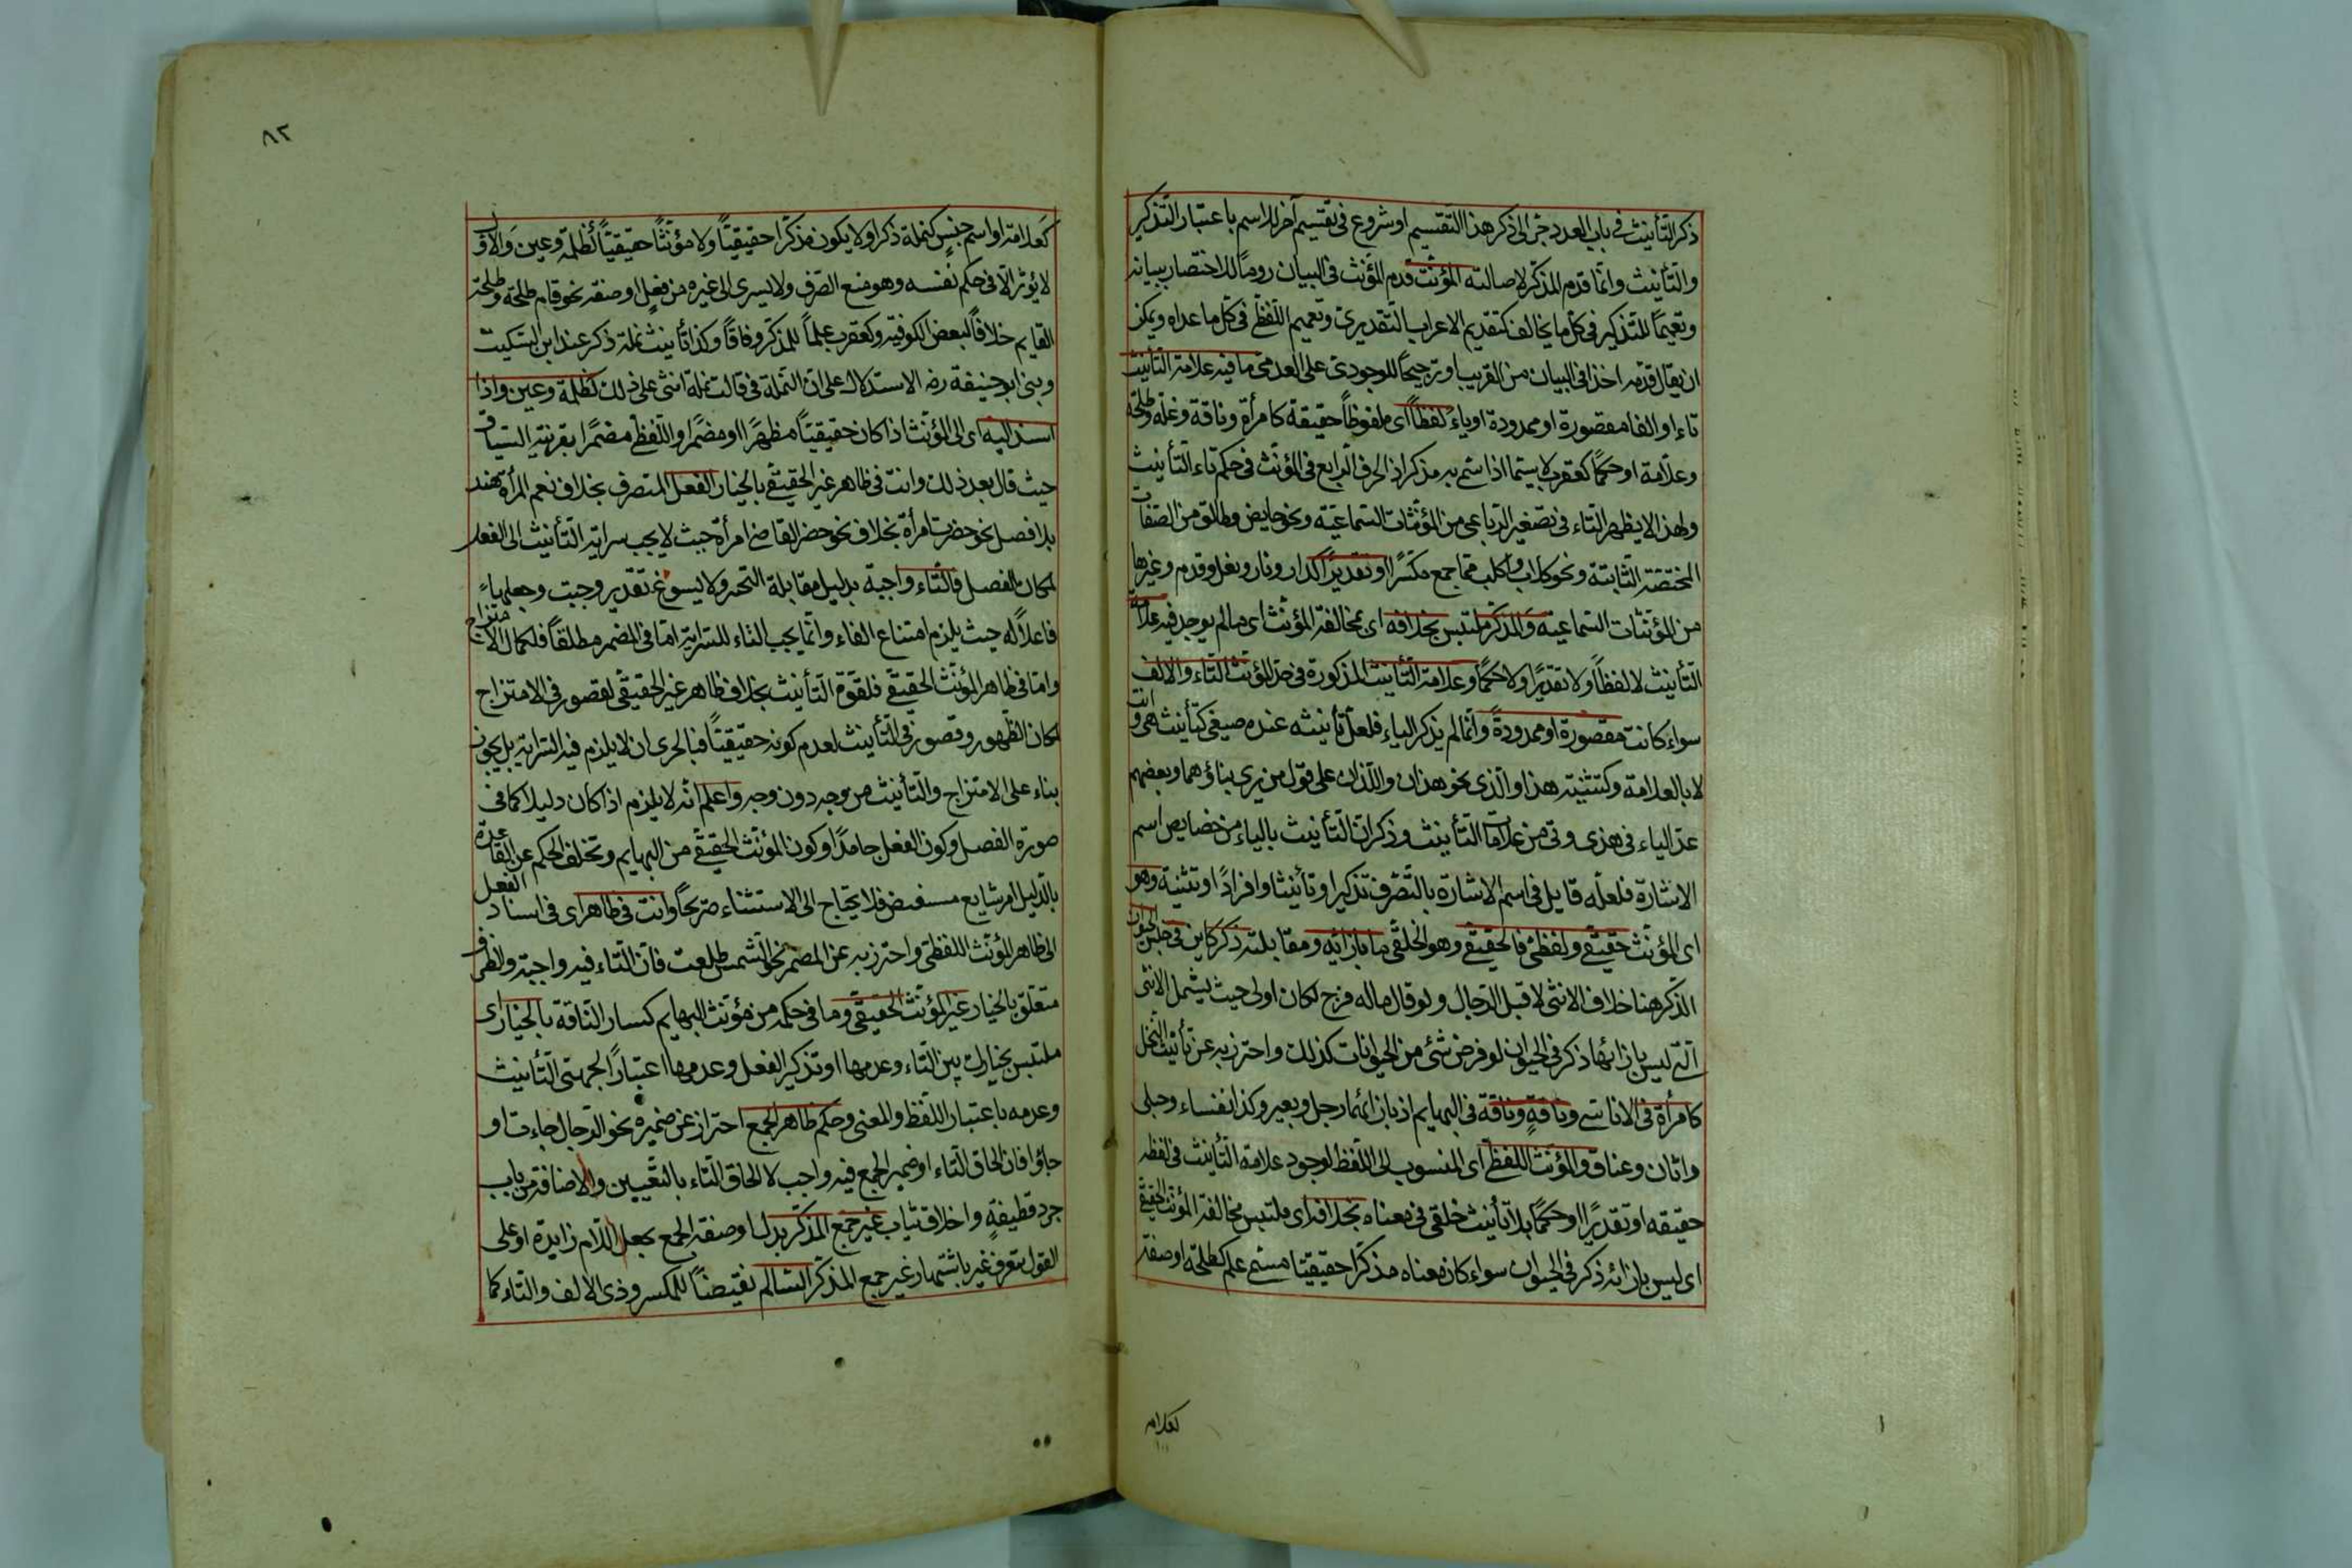 ذكر التأنيث في باب العدد جر الى ذكر هذا التقسيم او شروع في تقسيم آخر للاسم باعتبار التذكير
والتأنيث وانما قدم المذكر لاصالته المؤنث قدم المؤنث في البيان روما للاختصار ببيانه
وتعيما للتذكير في كل ما يخالف كتقديم الاعراب التقديرى وتعميم اللفظ في كل ما عداه ويمكن
ان يقال قدمه اخذا في البيان من القريب او ترجيحا للوجودى على العدمى ما فيه علامة التانيث
تاء او الفا مقصورة او ممدودة او ياء لفظا اى ملفوظا حقيقة كامرأة وناقة وغلة وطلحة
وعلامة او حكما كعقرب لا سيما اذا سمى به مذكر اذ الحرف الرابع في المؤنث في حكم تاء التأنيث
ولهذا لا يظهر التاء في تصغير الرباعى من المؤنثات السماعية ونحو حايض وطالق من الصفات
المختصة الثابتة ونحو كلاب واكلب مما جمع مكسرا او تقديرا كدار ونار ونعل وقدم وغيرها
من المؤنثات السماعية والمذكر ملتبس بخلافه اى بمخالفة المؤنث اى ما لم يوجد فيه علامة
التأنيث لا لفظا ولا تقديرا ولا حكما وعلامة التأنيث المذكورة في حد المؤنث التاء والالف
سواء كانت مقصورة او ممدودة وانما لم يذكر الياء فلعل تأنيثه عنده صيغى كتأنيث هى وانت
لا بالعلامة وكتثنية هذا والذى نحو هذان واللذان على قول من يرى بناؤهما وبعضهم
عد الياء في هذى وتى من علامات التأنيث وذكر ان التأنيث بالياء من خصايص اسم
الاشارة فلعله قايل في اسم الاشارة بالتصرف تذكيرا وتأنيثا وافرادا وتثنية وهو
اى المؤنث حقيقى ولفظى فالحقيقى وهو الخلقى ما بازائه ومقابلته ذكر كاين في جنس الحيوان
الذكر هنا خلاف الانثى لا قبل الرجال ولو قال ماله فرج لكان اولى حيث يشمل الانثى
التى ليس بازائها ذكر في الحيوان لو فرض شئ من الحيوانات كذلك واحترز به عن تأنيث النخل
كامرأة في الاناسى وناقة وناقة في البهايم اذ بازائهما رجل وبعير وكذا نفساء وحبلى
واتان وعناق والمؤنث اللفظى اى المنسوب الى اللفظ لوجود علامة التأنيث في لفظه
حقيقة او تقديرا او حكما بلا تأنيث خلقى في معناه بخلافه اى ملتبس مخالفة المؤنث الحقيقى
اى ليس بازائه ذكر في الحيوان سواء كان معناه مذكرا حقيقيا مسمى علم كطلحة او صفة
كعلامة
٨٢
كعلامة او اسم جنس كنملة ذكر او لا يكون مذكرا حقيقيا ولا مؤنثا حقيقيا كظلمة وعين والاول
لا يؤثر الا في حكم نفسه وهو منع الصرف ولا يسرى الى غيره من فعل او صفة نحو قام طلحة وطلحة
القايم خلافا لبعض الكوفية وكعقرب علما للمذكر وفاقا وكذا تأنيث نملة ذكر عند ابن السكيت
وبنى ابو حنيفة رضه الاستدلال على ان النملة في قالت نملة انثى على ذلك كظلمة وعين واذا
اسند اليه اى الى المؤنث اذا كان حقيقيا مظهرا او مضمرا واللفظى مضمرا بقرينة السياق
حيث قال بعد ذلك وانت في ظاهر غير الحقيقى بالخيار الفعل المتصرف بخلاف نعم المرأة هند
بلا فصل نحو حضرت امرأة بخلاف نحو حضر القاضى امرأة حيث لا يجب سراية التأنيث الى الفعل
لمكان الفصل فالتاء واجبة بدليل مقابلة التخير ولا يسوغ تقدير وجبت وجعلها
فاعلا له حيث يلزم امتناع الفاء وانما يجب التاء للسراية اما في المضمر مطلقا فلكمال الامتزاج
واما في ظاهر المؤنث الحقيقى فلقوة التأنيث بخلاف ظاهر غير الحقيقى لقصور في الامتزاج
لمكان الظهور وقصور في التأنيث لعدم كونه حقيقيا فبالحرى ان لا يلزم فيه السراية بل يكون
بناء على الامتزاج والتأنيث من وجه دون وجه واعلم انه لا يلزم اذا كان دليلا كما في
صورة الفصل وكون الفعل جامدا وكون المؤنث الحقيقى من البهايم وتخلف الحكم عن القاعدة
بالدليل امر شايع مستفيض فلا يحتاج الى الاستثناء صريحا وانت في ظاهر اى في اسناد الفعل
الى ظاهر المؤنث اللفظى واحترز به عن المضمر نحو الشمس طلعت فان التاء فيه واجبة والظرف
متعلق بالخيار غير المؤنث الحقيقى وما في حكمه من مؤنث البهايم كسار الناقة بالخيار اى
ملتبس بخيارك بين التاء وعدمها او تذكير الفعل وعدمها اعتبارا لجهتى التأنيث
وعدمه باعتبار اللفظ والمعنى وحكم ظاهر الجمع احتراز عن ضميره نحو الرجال جاءت او
جاؤا فان الحاق التاء او ضمير الجمع فيه واجب لا الحاق التاء بالتعيين والاضافة من باب
جرد قطيفة واخلاق ثياب غير جمع المذكر بدل او صفة الجمع بجعل اللام زايدة او على
القول بتعرف غير باشتهار غير جمع المذكر السالم نقيضا للمكسر وذى الالف والتاء كما